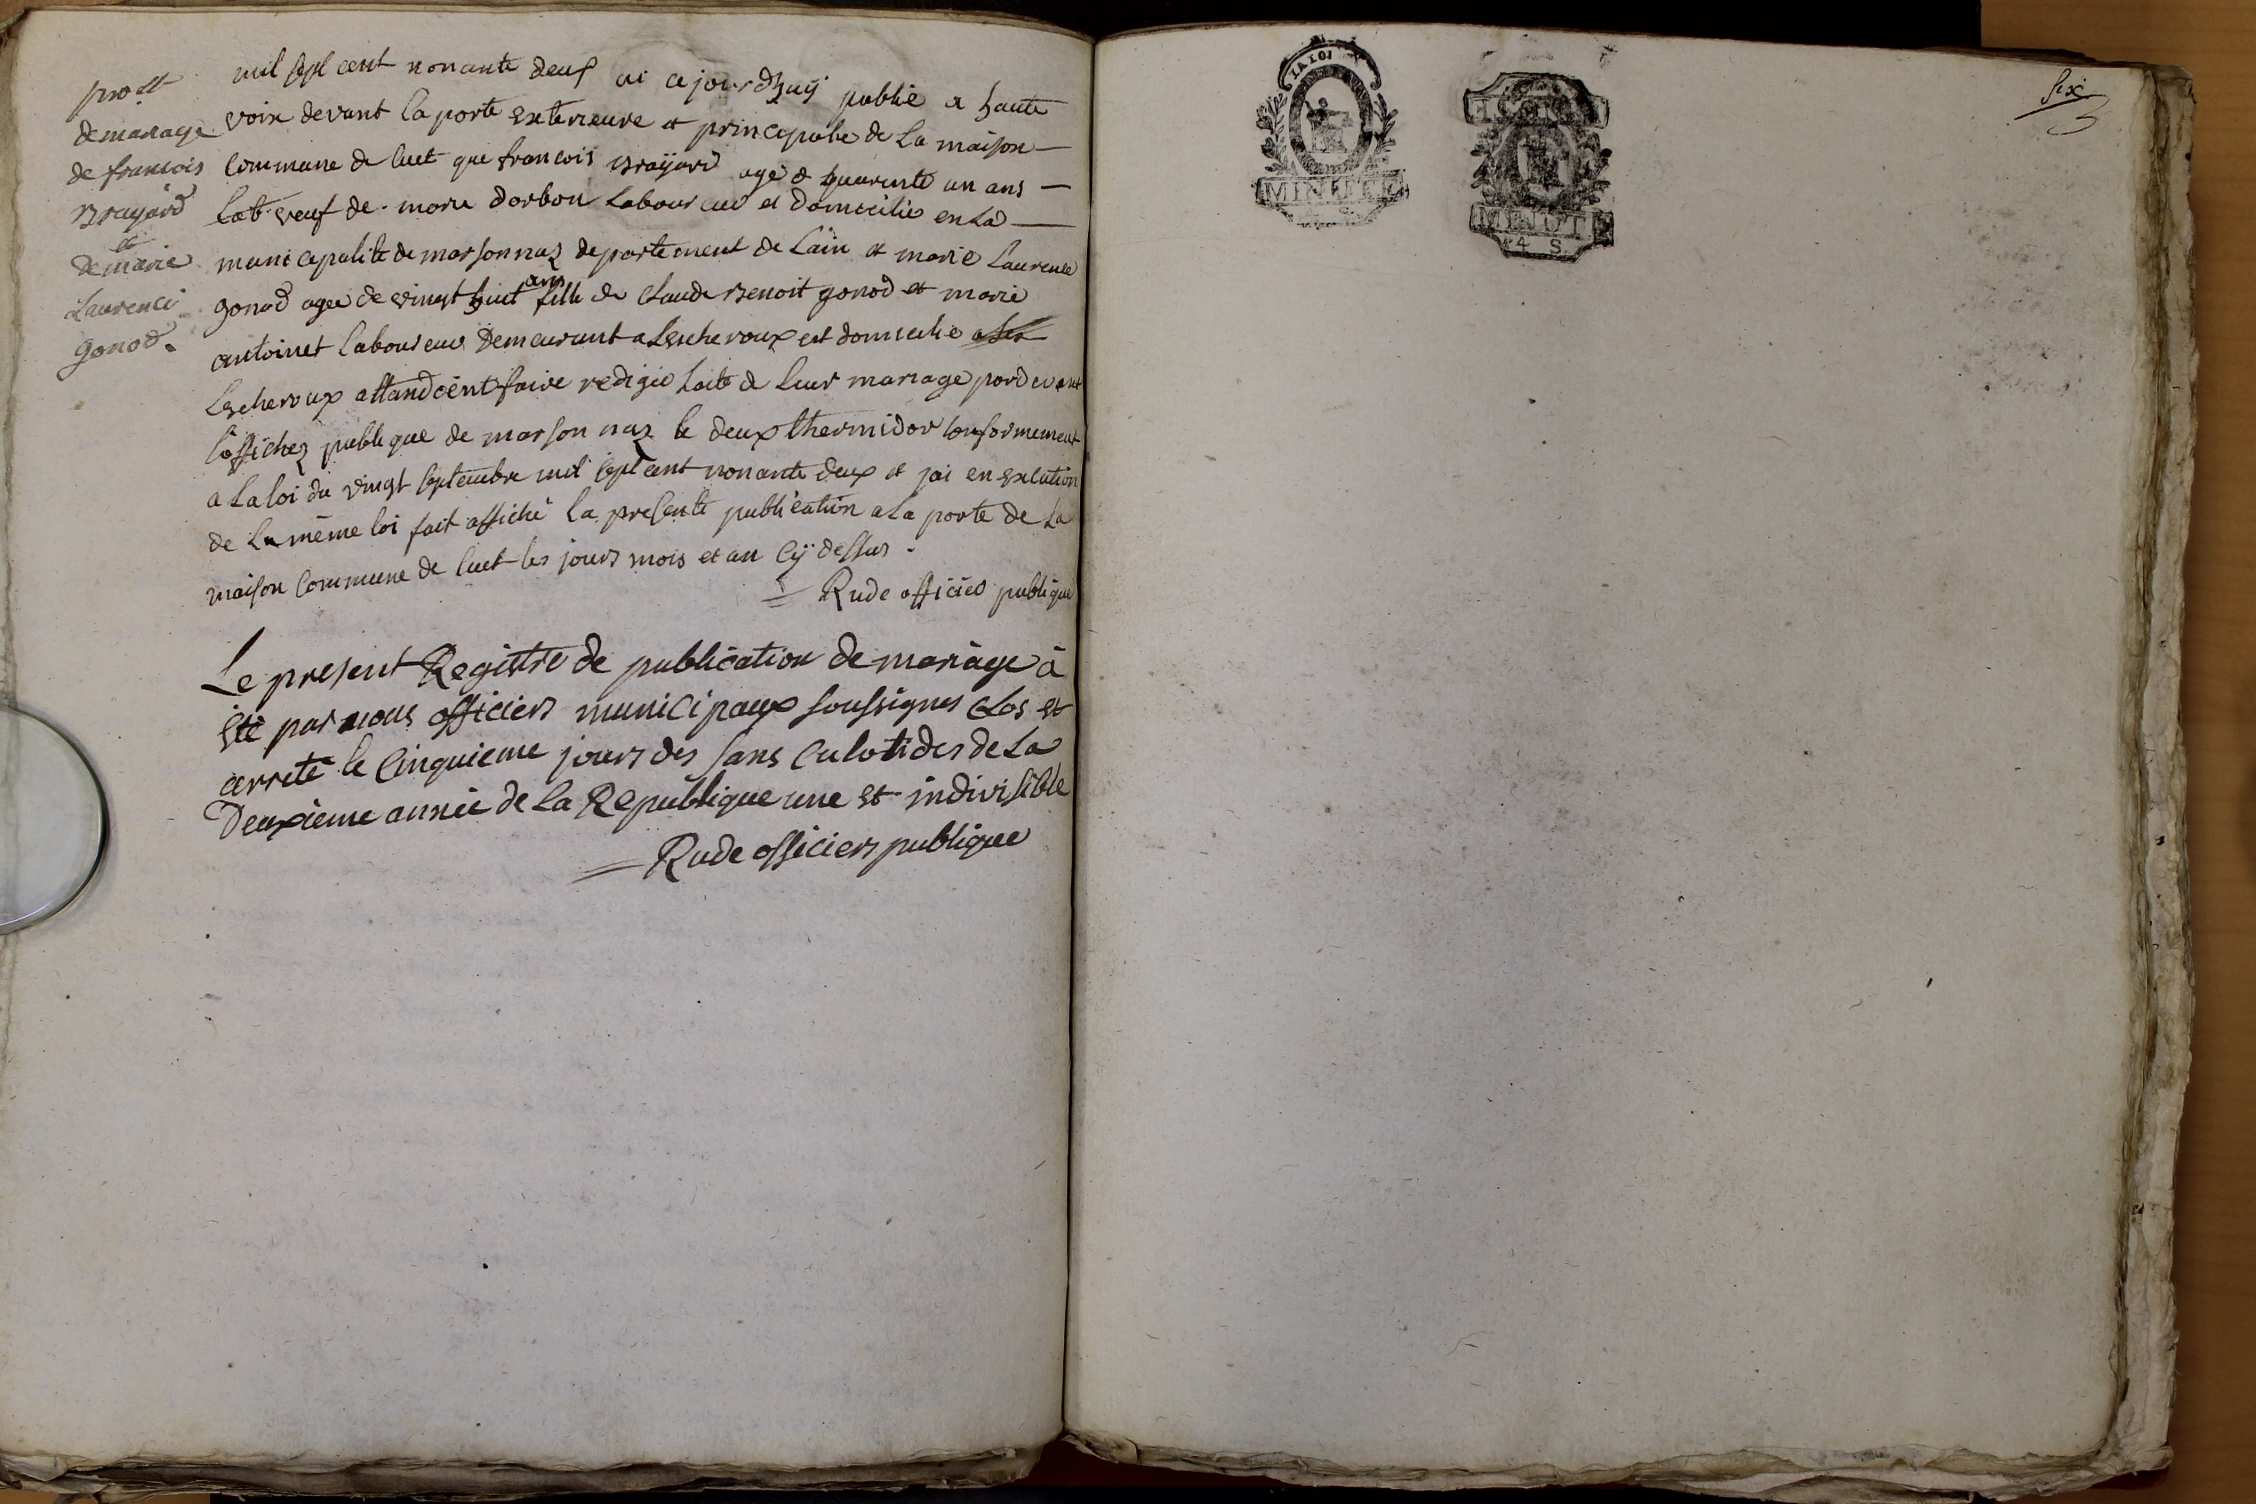 pro.on
de mariage
de francois
Brayard
et
de marie
Laurence
gonod.
mil sept cent nonante deux ai ce jourdhuÿ publié a haute
voix devant la porte exterieure et principale de la maison
commune de Cuet que francois Brayard agé de quarente un ans
Lab. veuf de marie dorbon Laboureur et domicilié en la
municipalité de marsonnaz departement de Lain et marie Laurence
gonod agée de vingt huit ans fille de Claude Benoit gonod et marie
antoinet laboureur demeurant a Lescheroux est domicilié
Lescheroux attandoént faire redigée Lacte de leur mariage pardevant
Loffichez publique de marsonnaz le deux thermidor conformement
a la loi du vingt septembre mil sept cent nonante deux et jai en execution
de la même loi fait affiché la presente publication a la porte de la
maison Commune de Cuet les jours mois et an Cÿ dessus.
Rude officier publique
Le present Registre de publication de mariage à
été par nous officiers municipaux soussignes Clos et
arreté le Cinquieme jours des sans culotides de La
Deuxieme année de La Republique une et indivisible
Rude officiers publique
LA LOI
MINUTE
MINUTE
4 S.
Six